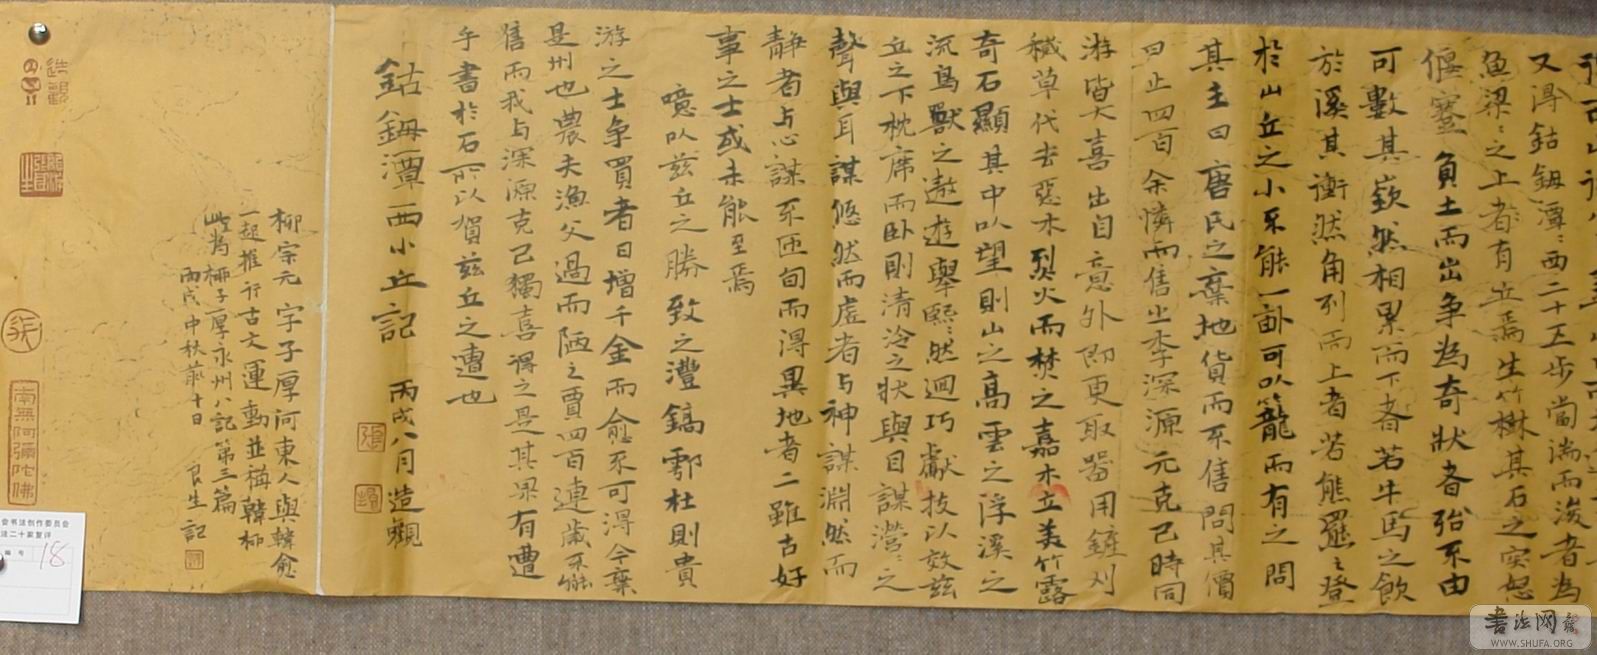 又得鈷鉧潭〻西二十五步當湍而浚者為
魚梁〻之上者有丘焉生竹樹其石之突怒
偃蹇負土而出爭為奇狀者殆不由
可數其嶔然相累而下者若牛馬之飲
於溪其衝然角列而上者若熊羆之登
於山丘之小不能一畝可以籠而有之問
其主曰唐氏之棄地貨而不售問其價
曰止四百余憐而售之李深源元克己時同
游皆大喜出自意外即更取器用鏟刈
穢草伐去惡木烈火而焚之嘉木立美竹露
奇石顯其中以望則山之高雲之浮溪之
流鳥獸之遨遊舉熙〻然迴巧獻技以效茲
丘之下枕席而卧則清泠之狀與目謀瀯〻之
聲與耳謀悠然而虛者与神謀淵然而
靜者与心謀不匝旬而得異地者二雖古好
事之士或未能至焉
噫以茲丘之勝致之灃鎬鄠杜則貴
游之士爭買者日增千金而愈不可得今棄
是州也農夫漁父過而陋之賈四百連歲不能
售而我与深源克己獨喜得之是其果有遭
乎書於石所以賀茲丘之遭也
鈷鉧潭西小丘記 丙戌八月造觀
柳宗元字子厚河東人與韓愈
一起推行古文運動並稱韓柳
此為柳子厚永州八記第三篇
丙戌中秋前十日 良生記
造觀
張
南無阿彌陀佛
会书法创作委员会
法二十家复评
编号 18
书法网
WWW.SHUFA.ORG